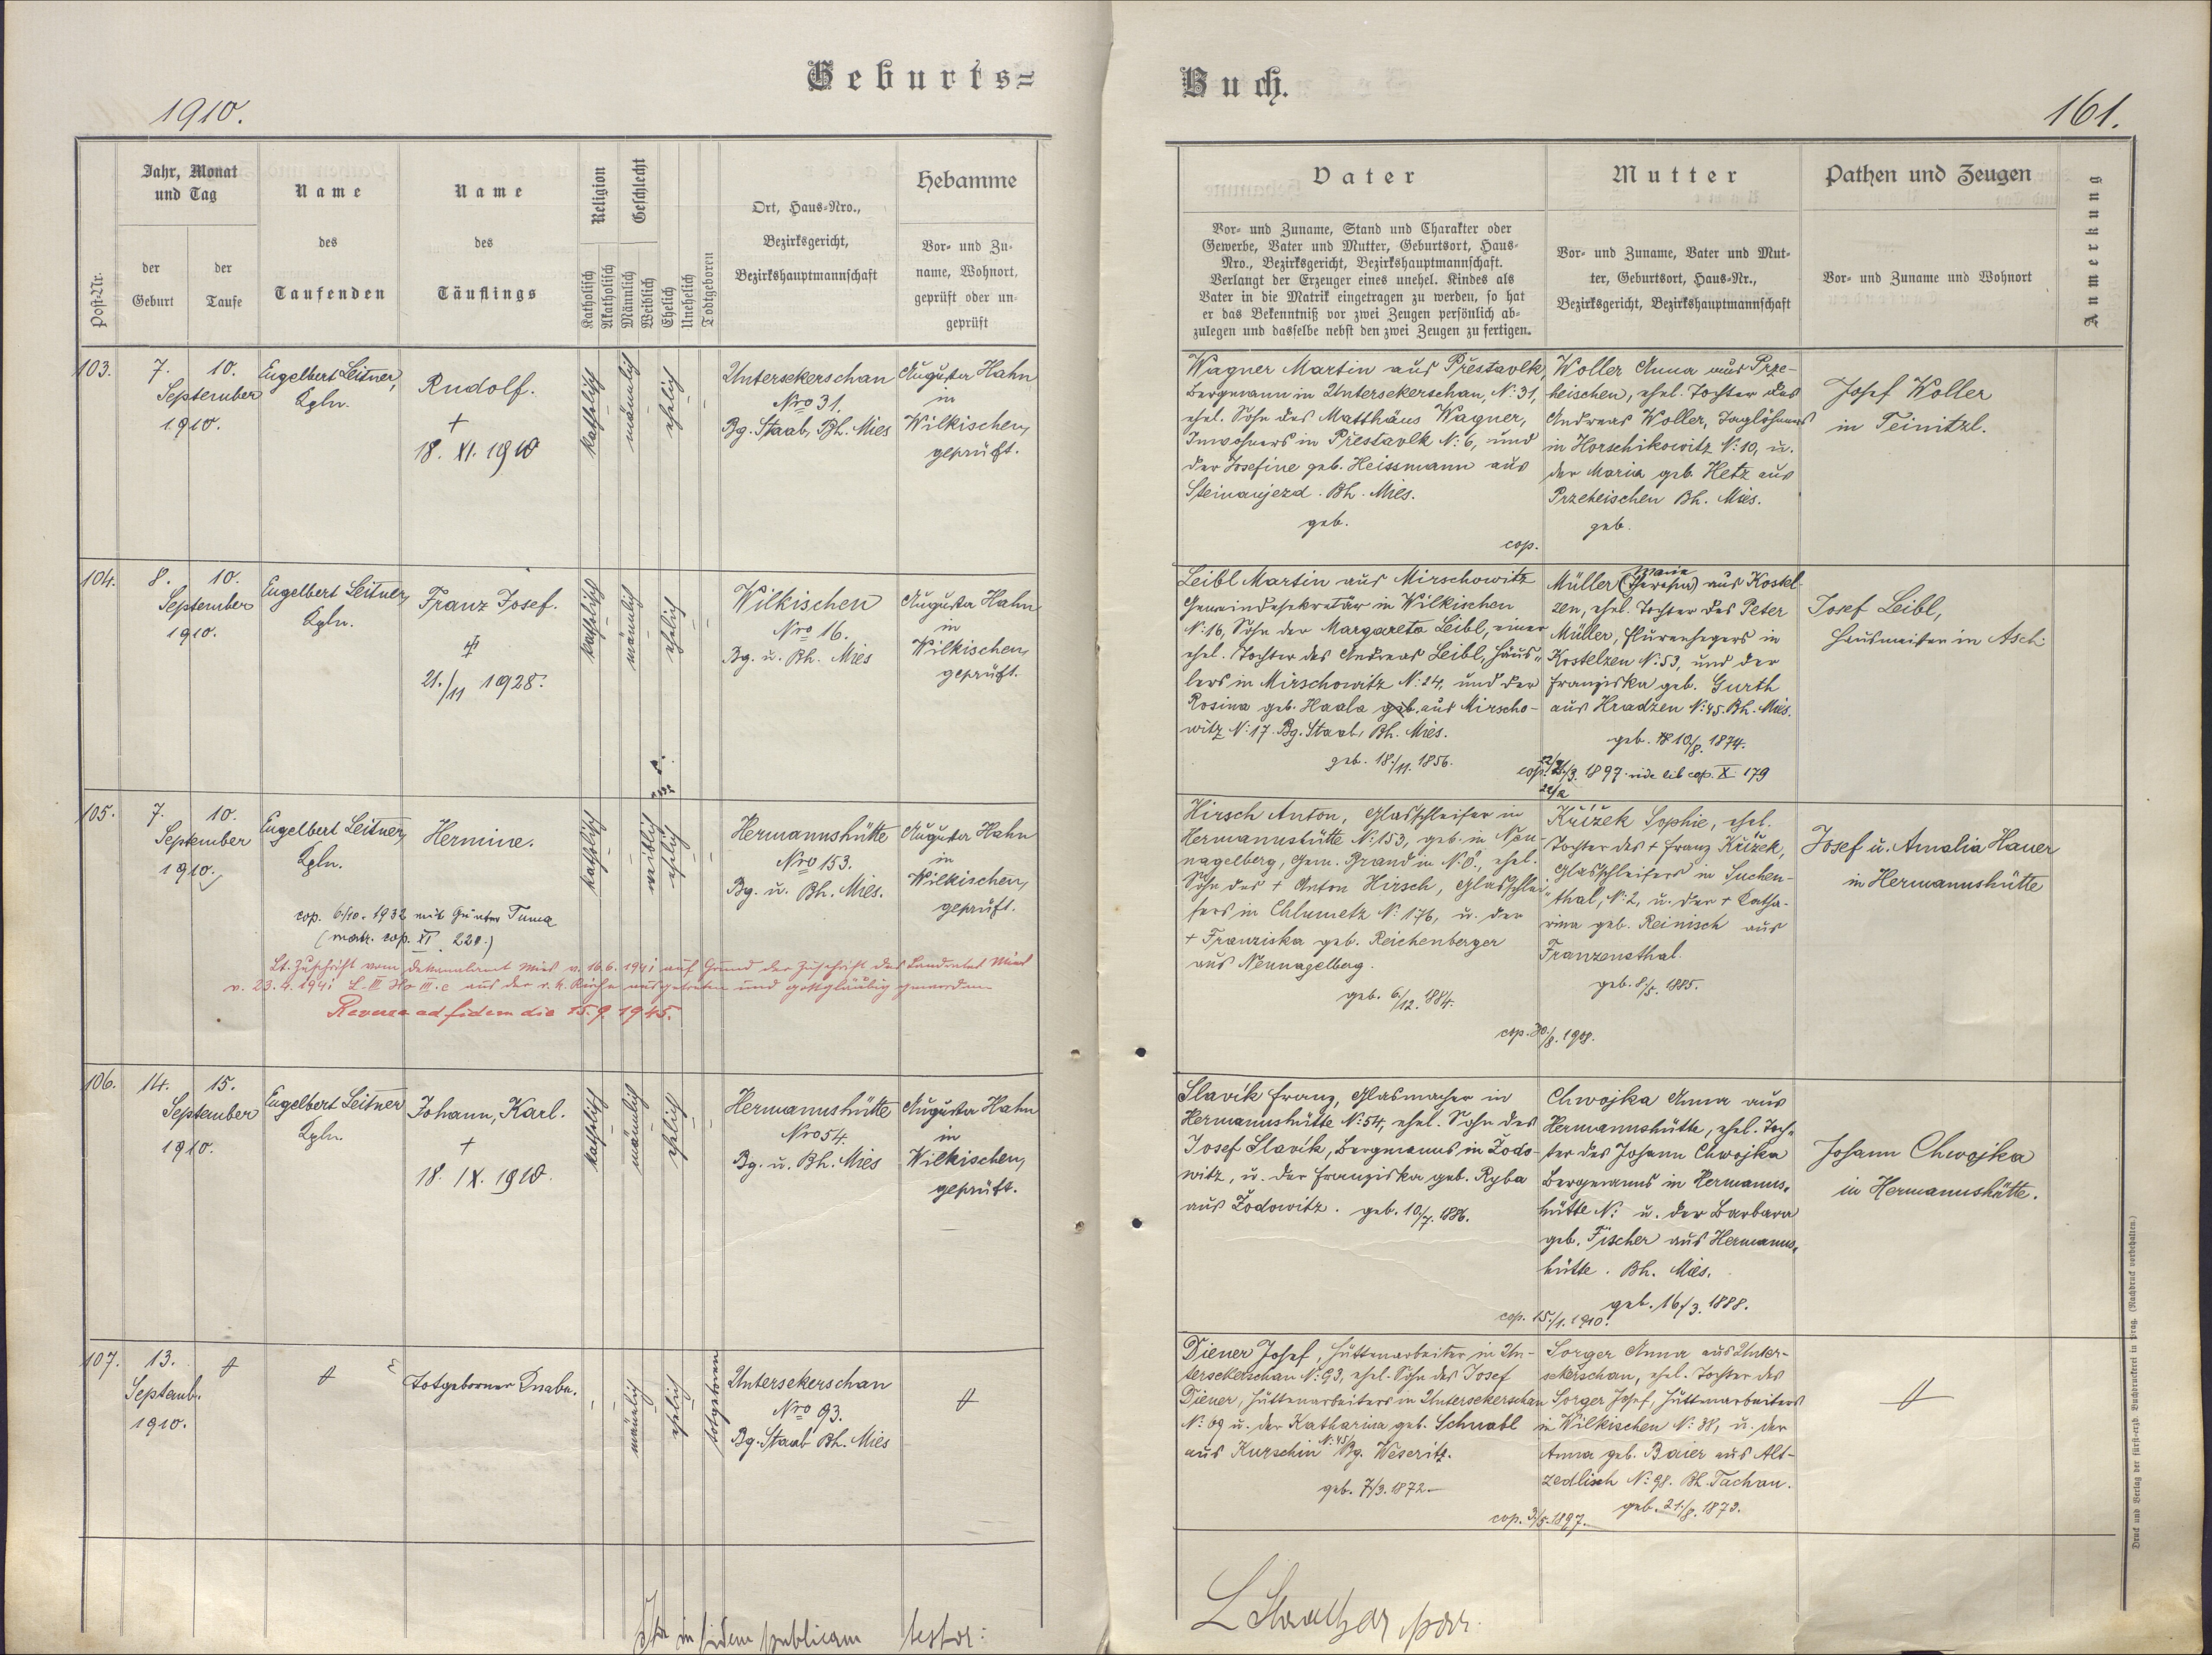 Geburts=
Buch.
1910.
161.
Post-Nr.
Jahr, Monat
und Tag
der
Geburt
der
Taufe
Name
des
Taufenden
Name
des
Täuflings
Religion
Katholisch
Akatholisch
Geschlecht
Männlich
Weiblich
Ehelich
Unehelich
Todtgeboren
Ort, Haus-Nro.,
Bezirksgericht,
Bezirkshauptmannschaft
Hebamme
Vor- und Zu-
name, Wohnort,
geprüft oder un-
geprüft
Vater
Vor- und Zuname, Stand und Charakter oder
Gewerbe, Vater und Mutter, Geburtsort, Haus-
Nro., Bezirksgericht, Bezirkshauptmannschaft.
Verlangt der Erzeuger eines unehel. Kindes als
Vater in die Matrik eingetragen zu werden, so hat
er das Bekenntniß vor zwei Zeugen persönlich ab-
zulegen und dasselbe nebst den zwei Zeugen zu fertigen.
Mutter
Vor- und Zuname, Vater und Mut-
ter, Geburtsort, Haus-Nr.,
Bezirksgericht, Bezirkshauptmannschaft
Pathen und Zeugen
Vor- und Zuname und Wohnort
Anmerkung
103.
7.
10.
September
1910.
Engelbert Leitner,
Kpln.
Rudolf.
+
18. XI. 1910
katholisch
männlich
ehelich
Untersekerschan
Nro 31.
Bg. Staab, Bh. Mies
Augusta Hahn
in
Wilkischen,
geprüft.
Wagner Martin aus Přestavlk,
Bergmann in Untersekerschan, N: 31,
ehel. Sohn des Matthäus Wagner,
Inwohners in Přestavlk N: 6, und
der Josefine geb. Heissmann aus
Steinaujezd. Bh. Mies.
geb.
cop.
Woller Anna aus Prze-
heischen, ehel. Tochter des
Andreas Woller, Taglöhners
in Horschikowitz N: 10, u.
der Maria geb. Hetz aus
Przeheischen Bh. Mies.
geb.
Josef Woller
in Teinitzl.
104.
8.
10.
September
1910.
Engelbert Leitner,
Kpln.
Franz Josef.
21./11 1928.
katholisch
männlich
ehelich
Wilkischen
Nro 16.
Bg. u. Bh. Mies
Augusta Hahn
in
Wilkischen,
geprüft.
Leibl Martin aus Mirschowitz
Gemeindesekretär in Wilkischen
N: 16, Sohn der Margareta Leibl, einer
ehel. Tochter des Andreas Leibl, Häus-
lers in Mirschowitz N: 24, und der
Rosina geb. Haala geb. aus Mirscho-
witz N: 17. Bg. Staab, Bh. Mies.
geb. 18./11. 1856.
Marie
Müller (Theresia) aus Kostel-
zen, ehel. Tochter des Peter
Müller, Flurenhegers in
Kostelzen N: 53, und der
Franziska geb. Gurth
aus Hradzen N: 45. Bh. Mies.
geb. 10./8. 1874.
1897 vide lib cop. X. 179
Josef Leibl,
Hausmeister in Asch.
105.
7.
10.
September
1910.
Engelbert Leitner,
Kpln.
Hermine.
katholisch
weiblich
ehelich
Hermannshütte
Nro 153.
Bg. u. Bh. Mies.
Augusta Hahn
in
Wilkischen,
geprüft.
cop. 6/10. 1932 mit Günter Tuma
(matr. cop. XI. 220.)
Lt. Zuschrift vom Dekanalamt Mies v. 16.6. 1941 auf Grund der Zuschrift des Landrates Mies
v. 23.4.1941 aus der r. k. Kirche ausgetreten und gottgläubig geworden
Reversa ad fidem die 15.9.1945.
Hirsch Anton, Glasschleifer in
Hermannshütte N: 153, geb. in Neu-
nagelberg, Gem. Grand in N.Ö., ehel.
Sohn des + Anton Hirsch, Glasschlei-
fers in Chlumetz N: 176, u. der
+ Franziska geb. Reichenberger
aus Neunagelberg.
geb. 6./12. 1884.
cop. 30./8. 1908.
Křížek Sophie, ehel.
Tochter des + Franz Křížek,
Glasschleifers in Suchen-
thal, N: 2, u. der + Katha-
rina geb. Reinisch aus
Franzensthal.
geb. 8./5. 1885.
Josef u. Amalia Hauer
in Hermannshütte
106.
14.
15.
September
1910.
Engelbert Leitner
Kpln.
Johann, Karl.
+
18. IX. 1910.
katholisch
männlich
ehelich
Hermannshütte
Nro 54.
Bg. u. Bh. Mies
Augusta Hahn
in
Wilkischen,
geprüft.
Slavík Franz, Glasmacher in
Hermannshütte N: 54, ehel. Sohn des
Josef Slavík, Bergmanns in Zodo-
witz, u. der Franziska geb. Ryba
aus Zodowitz. geb. 10./7. 1886.
cop. 15./1. 1910.
Chwojka Anna aus
Hermannshütte, ehel. Toch-
ter des Johann Chwojka
Bergmanns in Hermanns-
hütte N: u. der Barbara
geb. Fischer aus Hermanns-
hütte. Bh. Mies.
geb. 16./3. 1888.
Johann Chwojka
in Hermannshütte.
107.
13.
Septemb.
1910.
Totgeborner Knabe.
männlich
ehelich
totgeboren
Untersekerschan
Nro 93.
Bg. Staab Bh. Mies
Diener Josef, Hüttenarbeiter in Un-
tersekerschan N: 93, ehel. Sohn des Josef
Diener, Hüttenarbeiters in Untersekerschan
N: 69 u. der Katharina geb. Schwabl
aus Kurschin N: 45, Bg. Weseritz.
geb. 7/3. 1872.
cop. 3./5. 1897.
Sorger Anna aus Unter-
sekerschan, ehel. Tochter des
Sorger Josef, Hüttenarbeiters
in Wilkischen N: 38, u. der
Anna geb. Baier aus Alt-
zedlisch N: 98. Bh. Tachau.
geb. 21./8. 1873.
Ita in fidem publicam testor:
Druck und Verlag der fürst-erzb. Buchdruckerei in Prag. (Nachdruck vorbehalten.)